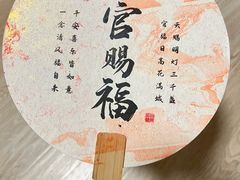 天赐明灯三千盏
官临日高花满城
官赐福
平安喜乐皆如意
一念清风福自来